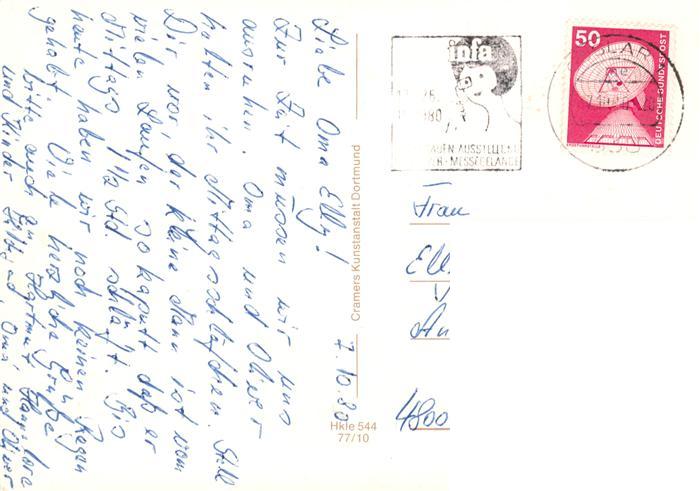 Liebe Oma Elly!
Zur Zeit müssen wir uns
ausruhen. Oma und Oliver
halten ihr Mittagsschläfchen. Stell
Dir vor, der kleine Mann ist vom
vielen Laufen so kaputt daß er
Mittags 1½ Std. schläft. Bis
heute haben wir noch keinen Regen
gehabt. Viele herzliche Grüße
bitte auch an Hartmut, Hannelore
und Kinder Oma und Oliver
7.10.80
Cramers Kunstanstalt Dortmund
Hkle 544
77/10
infa
AUEN-AUSSTELLU
ER-MESSEGELÄNDE
50
DEUTSCHE BUNDESPOST
Frau
Ell
An
4800